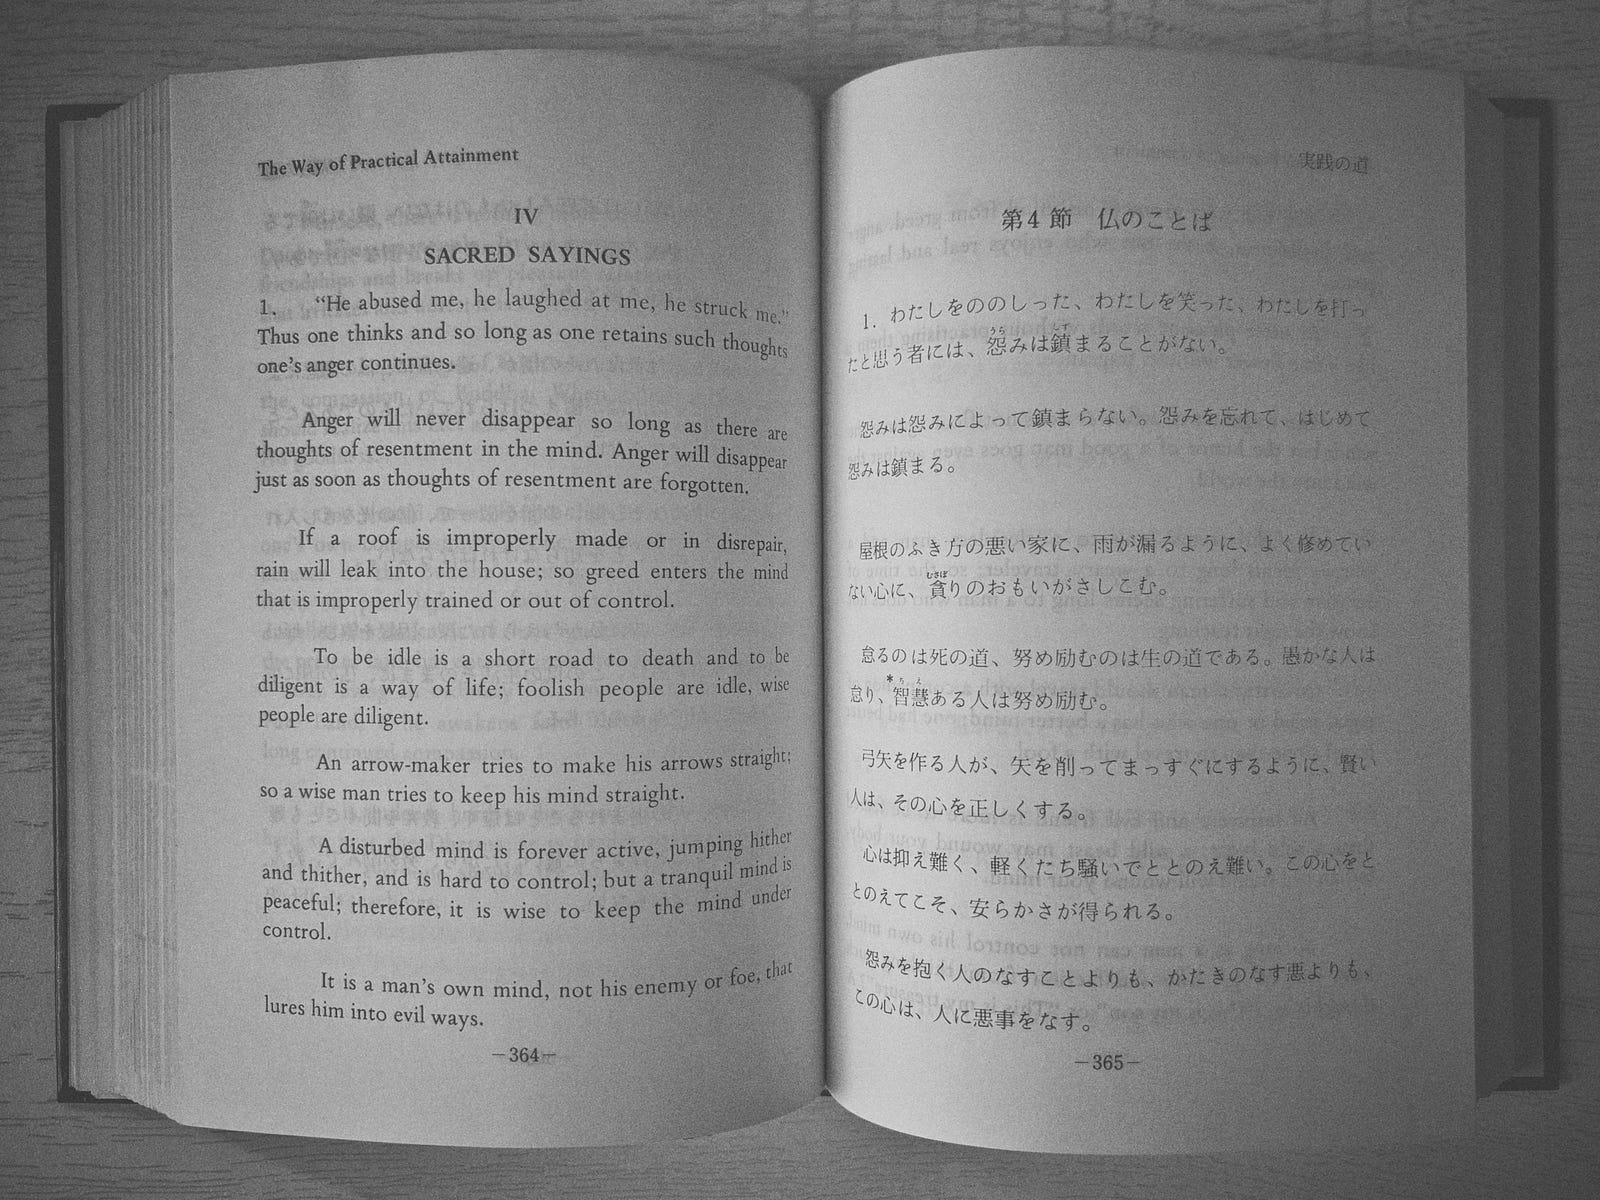 The Way of Practical Attainment
IV
SACRED SAYINGS
1. “He abused me, he laughed at me, he struck me.”
Thus one thinks and so long as one retains such thoughts
one’s anger continues.
Anger will never disappear so long as there are
thoughts of resentment in the mind. Anger will disappear
just as soon as thoughts of resentment are forgotten.
If a roof is improperly made or in disrepair,
rain will leak into the house; so greed enters the mind
that is improperly trained or out of control.
To be idle is a short road to death and to be
diligent is a way of life; foolish people are idle, wise
people are diligent.
An arrow-maker tries to make his arrows straight;
so a wise man tries to keep his mind straight.
A disturbed mind is forever active, jumping hither
and thither, and is hard to control; but a tranquil mind is
peaceful; therefore, it is wise to keep the mind under
control.
It is a man’s own mind, not his enemy or foe, that
lures him into evil ways.
—364—
実践の道
第4節 仏のことば
1. わたしをののしった、わたしを笑った、わたしを打っ
たと思う者には、怨みは鎮まることがない。
怨みは怨みによって鎮まらない。怨みを忘れて、はじめて
怨みは鎮まる。
屋根のふき方の悪い家に、雨が漏るように、よく修めてい
ない心に、貪りのおもいがさしこむ。
怠るのは死の道、努め励むのは生の道である。愚かな人は
怠り、*智慧ある人は努め励む。
弓矢を作る人が、矢を削ってまっすぐにするように、賢い
人は、その心を正しくする。
心は抑え難く、軽くたち騒いでととのえ難い。この心をと
とのえてこそ、安らかさが得られる。
怨みを抱く人のなすことよりも、かたきのなす悪よりも、
この心は、人に悪事をなす。
—365—